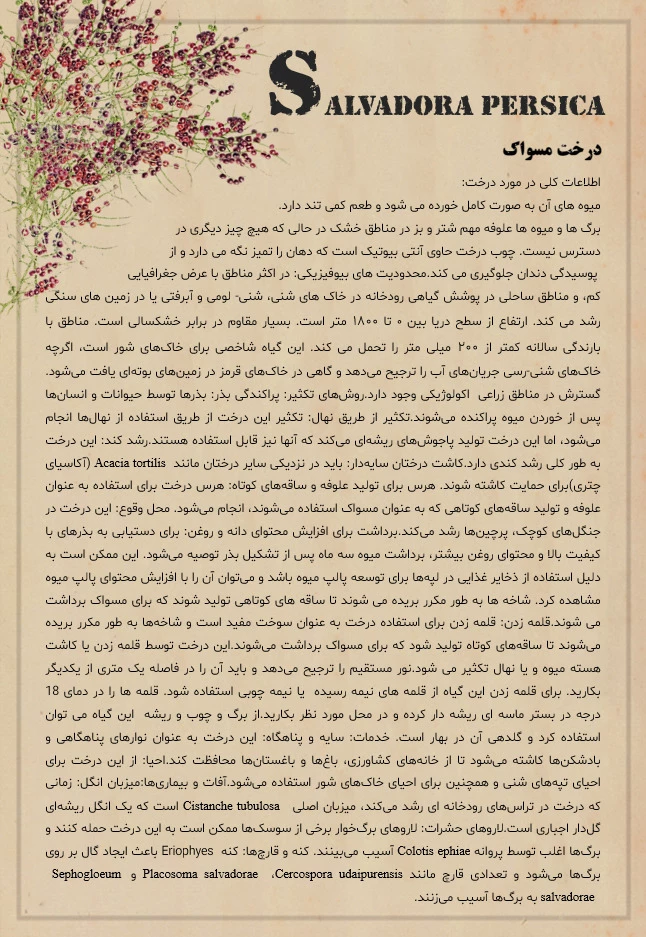 SALVADORA PERSICA
درخت مسواک
اطلاعات کلی در مورد درخت:
میوه های آن به صورت کامل خورده می شود و طعم کمی تند دارد.
برگ ها و میوه ها علوفه مهم شتر و بز در مناطق خشک در حالی که هیچ چیز دیگری در
دسترس نیست. چوب درخت حاوی آنتی بیوتیک است که دهان را تمیز نگه می دارد و از
پوسیدگی دندان جلوگیری می کند.محدودیت های بیوفیزیکی: در اکثر مناطق با عرض جغرافیایی
کم، و مناطق ساحلی در پوشش گیاهی رودخانه در خاک های شنی، شنی- لومی و آبرفتی یا در زمین های سنگی
رشد می کند. ارتفاع از سطح دریا بین ۰ تا ۱۸۰۰ متر است. بسیار مقاوم در برابر خشکسالی است. مناطق با
بارندگی سالانه کمتر از ۲۰۰ میلی متر را تحمل می کند. این گیاه شاخصی برای خاک‌های شور است، اگرچه
خاک‌های شنی-رسی جریان‌های آب را ترجیح می‌دهد و گاهی در خاک‌های قرمز در زمین‌های بوته‌ای یافت می‌شود.
گسترش در مناطق زراعی اکولوژیکی وجود دارد.روش‌های تکثیر: پراکندگی بذر: بذرها توسط حیوانات و انسان‌ها
پس از خوردن میوه پراکنده می‌شوند.تکثیر از طریق نهال: تکثیر این درخت از طریق استفاده از نهال‌ها انجام
می‌شود، اما این درخت تولید پاجوش‌های ریشه‌ای می‌کند که آنها نیز قابل استفاده هستند.رشد کند: این درخت
به طور کلی رشد کندی دارد.کاشت درختان سایه‌دار: باید در نزدیکی سایر درختان مانند Acacia tortilis (آکاسیای
چتری)برای حمایت کاشته شوند. هرس برای تولید علوفه و ساقه‌های کوتاه: هرس درخت برای استفاده به عنوان
علوفه و تولید ساقه‌های کوتاهی که به عنوان مسواک استفاده می‌شوند، انجام می‌شود. محل وقوع: این درخت در
جنگل‌های کوچک، پرچین‌ها رشد می‌کند.برداشت برای افزایش محتوای دانه و روغن: برای دستیابی به بذرهای با
کیفیت بالا و محتوای روغن بیشتر، برداشت میوه سه ماه پس از تشکیل بذر توصیه می‌شود. این ممکن است به
دلیل استفاده از ذخایر غذایی در لپه‌ها برای توسعه پالپ میوه باشد و می‌توان آن را با افزایش محتوای پالپ میوه
مشاهده کرد. شاخه ها به طور مکرر بریده می شوند تا ساقه های کوتاهی تولید شوند که برای مسواک برداشت
می شوند.قلمه زدن: قلمه زدن برای استفاده درخت به عنوان سوخت مفید است و شاخه‌ها به طور مکرر بریده
می‌شوند تا ساقه‌های کوتاه تولید شود که برای مسواک برداشت می‌شوند.این درخت توسط قلمه زدن یا کاشت
هسته میوه و یا نهال تکثیر می شود.نور مستقیم را ترجیح می‌دهد و باید آن را در فاصله یک متری از یکدیگر
بکارید. برای قلمه زدن این گیاه از قلمه های نیمه رسیده یا نیمه چوبی استفاده شود. قلمه ها را در دمای 18
درجه در بستر ماسه ای ریشه دار کرده و در محل مورد نظر بکارید.از برگ و چوب و ریشه این گیاه می توان
استفاده کرد و گلدهی آن در بهار است. خدمات: سایه و پناهگاه: این درخت به عنوان نوارهای پناهگاهی و
بادشکن‌ها کاشته می‌شود تا از خانه‌های کشاورزی، باغ‌ها و باغستان‌ها محافظت کند.احیا: از این درخت برای
احیای تپه‌های شنی و همچنین برای احیای خاک‌های شور استفاده می‌شود.آفات و بیماری‌ها:میزبان انگل: زمانی
که درخت در تراس‌های رودخانه ای رشد می‌کند، میزبان اصلی Cistanche tubulosa است که یک انگل ریشه‌ای
گل‌دار اجباری است.لاروهای حشرات: لاروهای برگ‌خوار برخی از سوسک‌ها ممکن است به این درخت حمله کنند و
برگ‌ها اغلب توسط پروانه Colotis ephiae آسیب می‌بینند. کنه و قارچ‌ها: کنه Eriophyes باعث ایجاد گال بر روی
برگ‌ها می‌شود و تعدادی قارچ مانند Cercospora udaipurensis، Placosoma salvadorae و Sephogloeum
salvadorae به برگ‌ها آسیب می‌زنند.